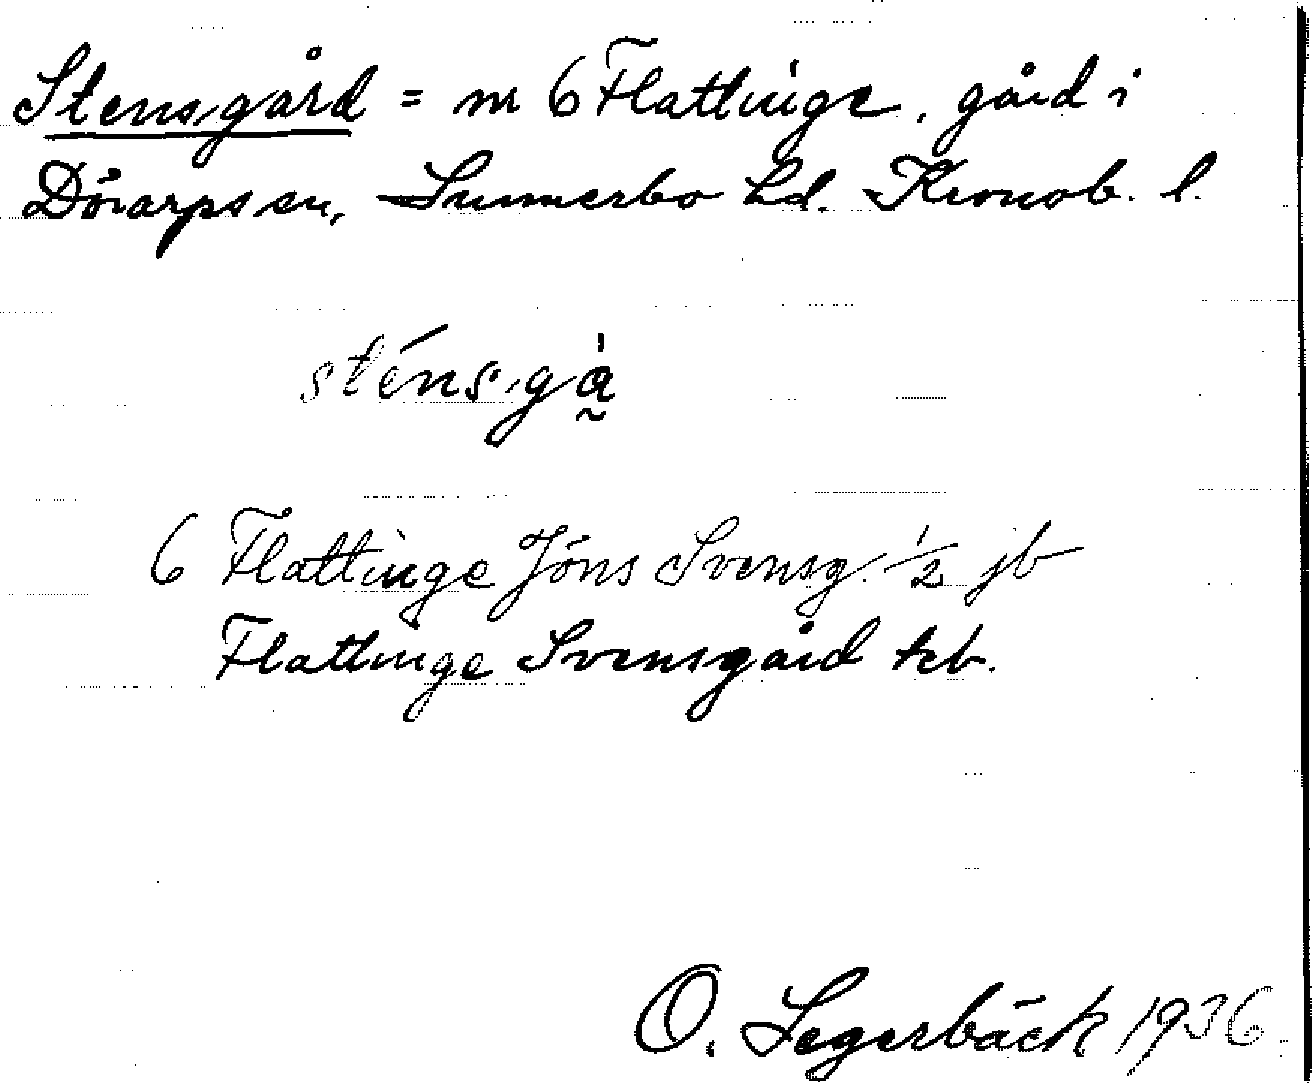 Stensgård = nr 6 Flattinge, gård i
Dörarps sn, Sunnerbo hd. Kronob. l.
sténsgå̰
6 Flattinge Jöns Svensg. 1/2 jb
Flattinge Svensgård
O. Segerbäck 1936